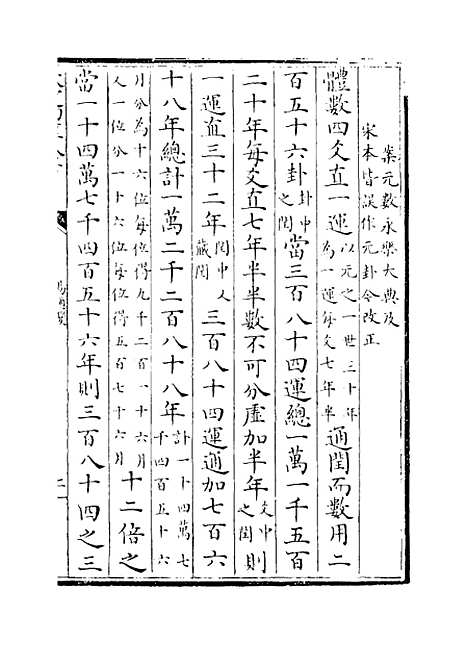 案元數永樂大典及
宋本皆誤作元卦今改正
體數四爻直一運以元之一世三十年為一運每爻七年半通閏而數用二
百五十六卦卦中之閏當三百八十四運總一萬一千五百
二十年每爻直七年半半數不可分虛加半年爻中之閏則
一運直三十二年閏中又藏閏三百八十四運通加七百六
十八年總計一萬二千二百八十八年計一十四萬七千四百五十六
月分為十六位每位得九千二百一十六月又一位分一十六位每位得五百七十六月十二倍之
當一十四萬七千四百五十六年則三百八十四之三